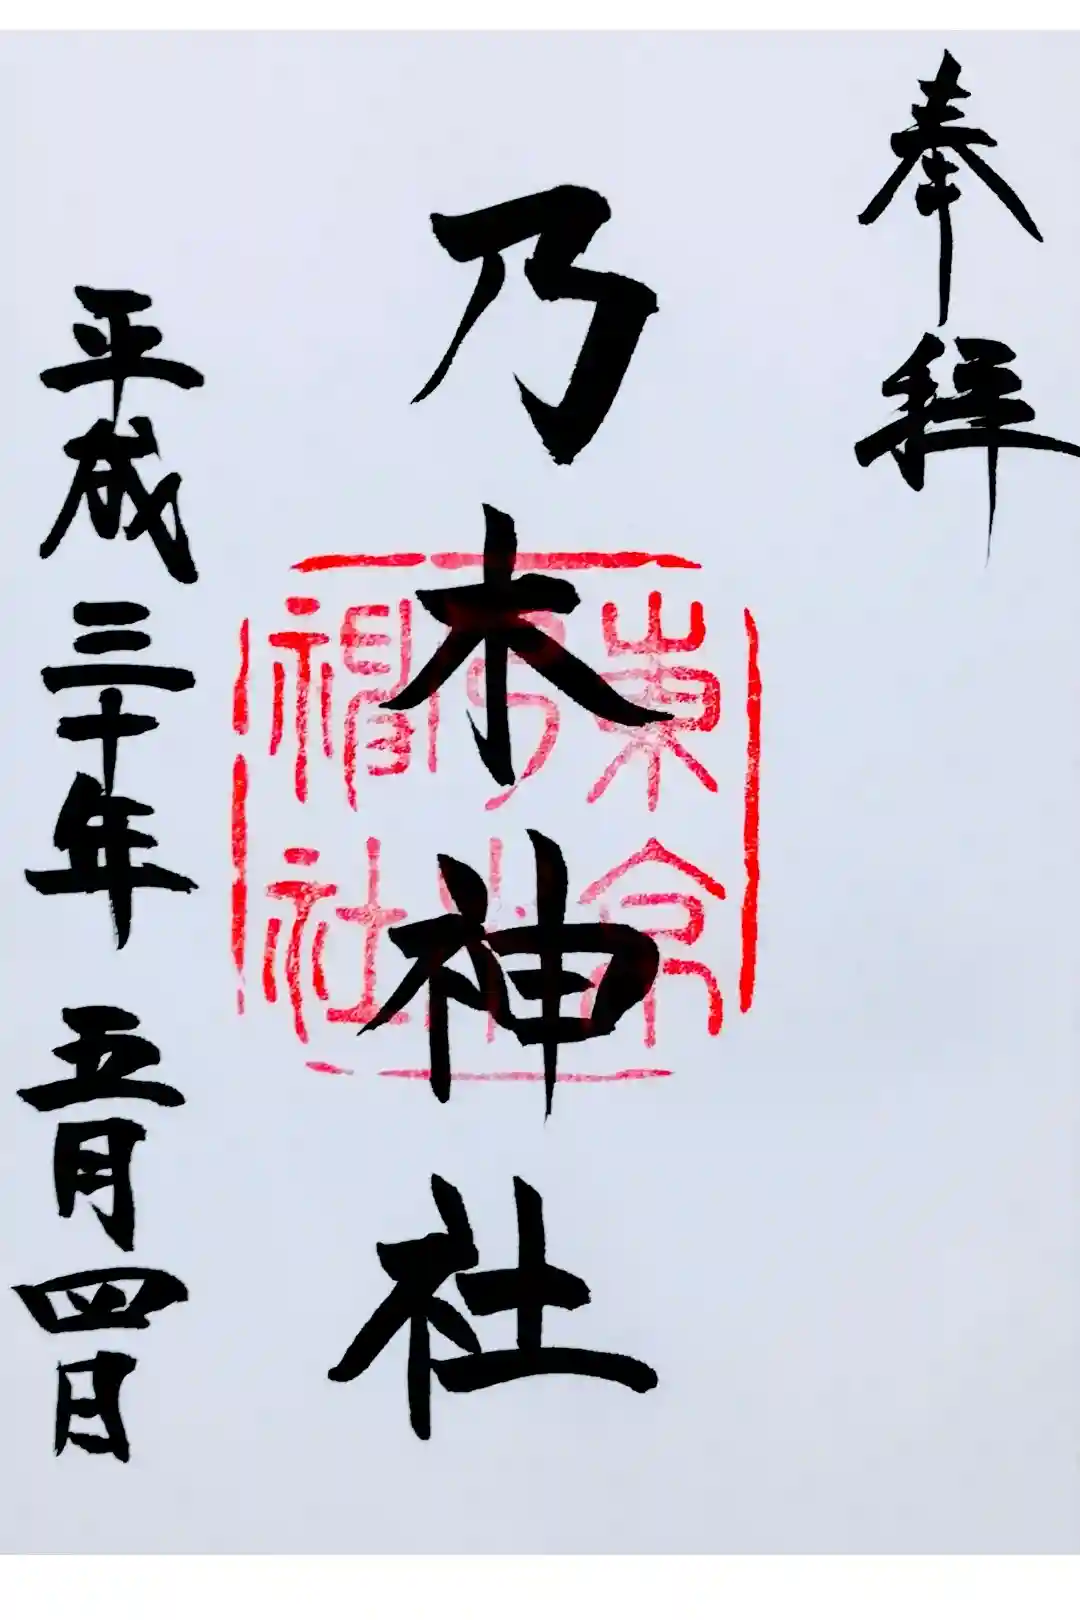 奉拝
乃木神社
東京
乃木
神社
平成三十年 五月四日